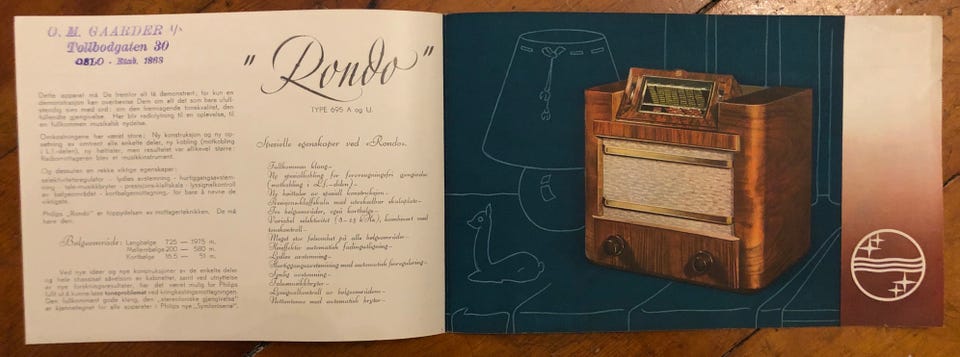 O. M. GAARDER A/S
Tollbodgaten 30
OSLO - Etab. 1868
Dette apparat må De fremfor alt få demonstrert; for kun en
demonstrasjon kan overbevise Dem om alt det som bare ufull-
stendig sies med ord: om den fremragende tonekvalitet, den
fullendte gjengivelse. Her blir radiolytning til en oplevelse, til
en fullkommen musikalsk nydelse.
Omkostningene har været store: Ny konstruksjon og ny op-
setning av omtrent alle enkelte deler, ny kobling (motkobling
i L.f.-delen), ny høittaler, men resultatet var allikevel større:
Radiomottageren blev et musikkinstrument.
Og dessuten en rekke viktige egenskaper:
selektivitetsregulator - lydløs avstemning - hurtiggangsavstem-
ning - tele-musikkbryter - presisjons-klaffskala - lyssignalkontroll
av bølgeområdet - kortbølgemottagning, for bare å nevne de
viktigste.
Philips „Rondo" er toppydelsen av mottagerteknikken. De må
høre den.
Bølgeområde: Langbølge 725 — 1975 m.
Mellembølge 200 — 580 m.
Kortbølge 16.5 — 51 m.
Ved nye ideer og nye konstruksjoner av de enkelte deler
og hele chassiset såvelsom av kabinettet, samt ved utnyttelse
av nye forskningsresultater, har det været mulig for Philips
fullt ut å kunne løse toneproblemet ved kringkastingsmottagningen.
Den fullkomment gode klang, den „stereofoniske gjengivelse"
er kjennetegnet for alle apparater i Philips nye „Symfoniserie".
"Rondo"
TYPE 695 A og U.
Spesielle egenskaper ved «Rondo».
Fullkommen klang -
Ny spesialkobling for forvrengningsfri gjengivelse
(motkobling i L.f.-delen) -
Ny høittaler av spesiell konstruksjon -
Presisjons-klaffskala med utskiftbar skalaplate -
Tre bølgeområder, også kortbølge -
Variabel selektivitet kHz), kombinert med
tonekontroll -
Meget stor følsomhet på alle bølgeområder -
Høieffektiv automatisk fadingutligning -
Lydløs avstemning -
Hurtiggangsavstemning med automatisk finregulering -
Synlig avstemning -
Tale-musikkbryter -
Lyssignalkontroll av bølgeområdene -
Nettantenne med automatisk bryter -